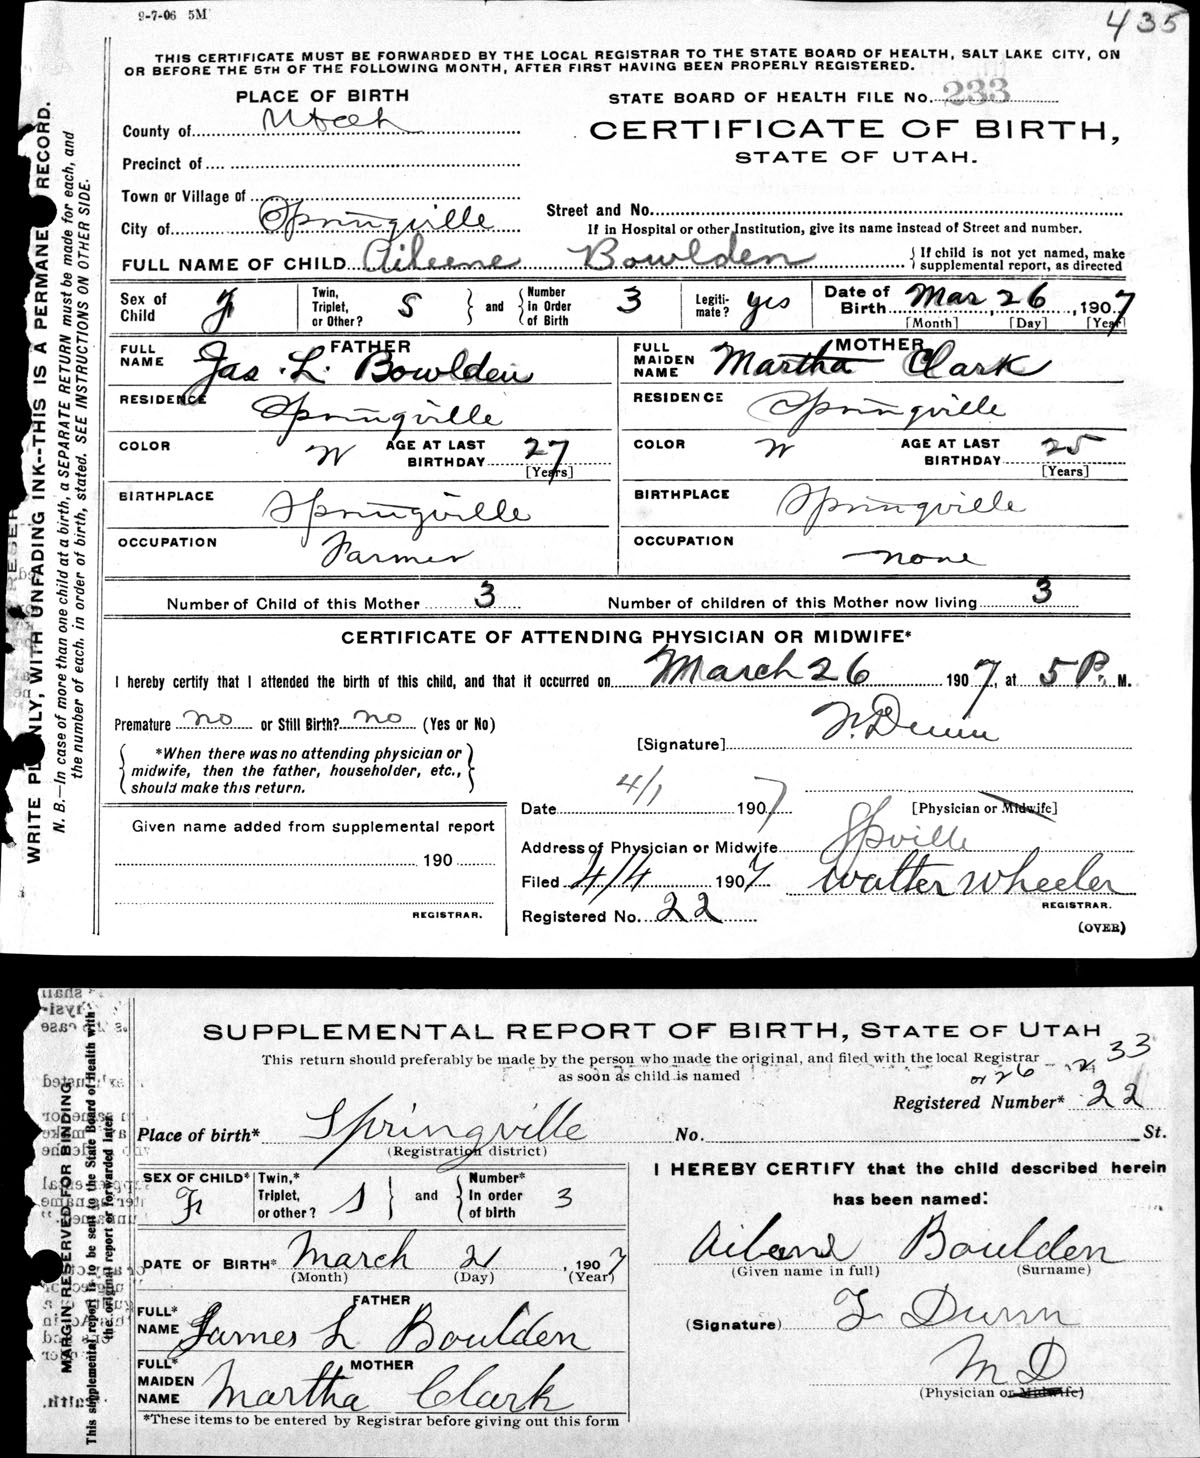 9-7-06 5M
435
THIS CERTIFICATE MUST BE FORWARDED BY THE LOCAL REGISTRAR TO THE STATE BOARD OF HEALTH, SALT LAKE CITY, ON
OR BEFORE THE 5TH OF THE FOLLOWING MONTH, AFTER FIRST HAVING BEEN PROPERLY REGISTERED.
PLACE OF BIRTH
STATE BOARD OF HEALTH FILE No. 233
County of Utah
CERTIFICATE OF BIRTH,
STATE OF UTAH.
Precinct of
Town or Village of
City of Springville
Street and No.
If in Hospital or other Institution, give its name instead of Street and number.
FULL NAME OF CHILD Aileene Bowlden
If child is not yet named, make
supplemental report, as directed
Sex of Child F
Twin, Triplet, or Other? S and Number in Order of Birth 3
Legiti-mate? yes
Date of Birth Mar 26, 1907
[Month] [Day] [Year]
FATHER
FULL NAME Jas. L. Bowlden
MOTHER
FULL MAIDEN NAME Martha Clark
RESIDENCE Springville
RESIDENCE Springville
COLOR W AGE AT LAST BIRTHDAY 27 [Years]
COLOR W AGE AT LAST BIRTHDAY 25 [Years]
BIRTHPLACE Springville
BIRTHPLACE Springville
OCCUPATION Farmer
OCCUPATION none
Number of Child of this Mother 3 Number of children of this Mother now living 3
CERTIFICATE OF ATTENDING PHYSICIAN OR MIDWIFE*
I hereby certify that I attended the birth of this child, and that it occurred on March 26 1907, at 5 P. M.
Premature no or Still Birth? no (Yes or No)
[Signature] F. Dunn
*When there was no attending physician or
midwife, then the father, householder, etc.,
should make this return.
Date 4/1 1907
[Physician or Midwife]
Given name added from supplemental report
190
REGISTRAR.
Address of Physician or Midwife Spville
Filed 4/4 1907 Walter Wheeler
REGISTRAR.
Registered No. 22
(OVER)
WRITE PLAINLY, WITH UNFADING INK--THIS IS A PERMANE RECORD.
N. B.—In case of more than one child at a birth, a SEPARATE RETURN must be made for each, and
the number of each, in order of birth, stated. SEE INSTRUCTIONS ON OTHER SIDE.
SUPPLEMENTAL REPORT OF BIRTH, STATE OF UTAH
This return should preferably be made by the person who made the original, and filed with the local Registrar
as soon as child is named
or 26
233
Registered Number* 22
Place of birth* Springville No. St.
(Registration district)
SEX OF CHILD* F
Twin,* Triplet, or other? S and Number* In order of birth 3
I HEREBY CERTIFY that the child described herein
has been named:
DATE OF BIRTH* March 21, 1907
(Month) (Day) (Year)
Ailene Boulden
(Given name in full) (Surname)
FATHER
FULL* NAME James L Boulden
(Signature) F Dunn
M D
(Physician or Midwife)
MOTHER
FULL* MAIDEN NAME Martha Clark
*These items to be entered by Registrar before giving out this form
MARGIN RESERVED FOR BINDING
This supplemental report is to be sent to the State Board of Health with
the original report or forwarded later.